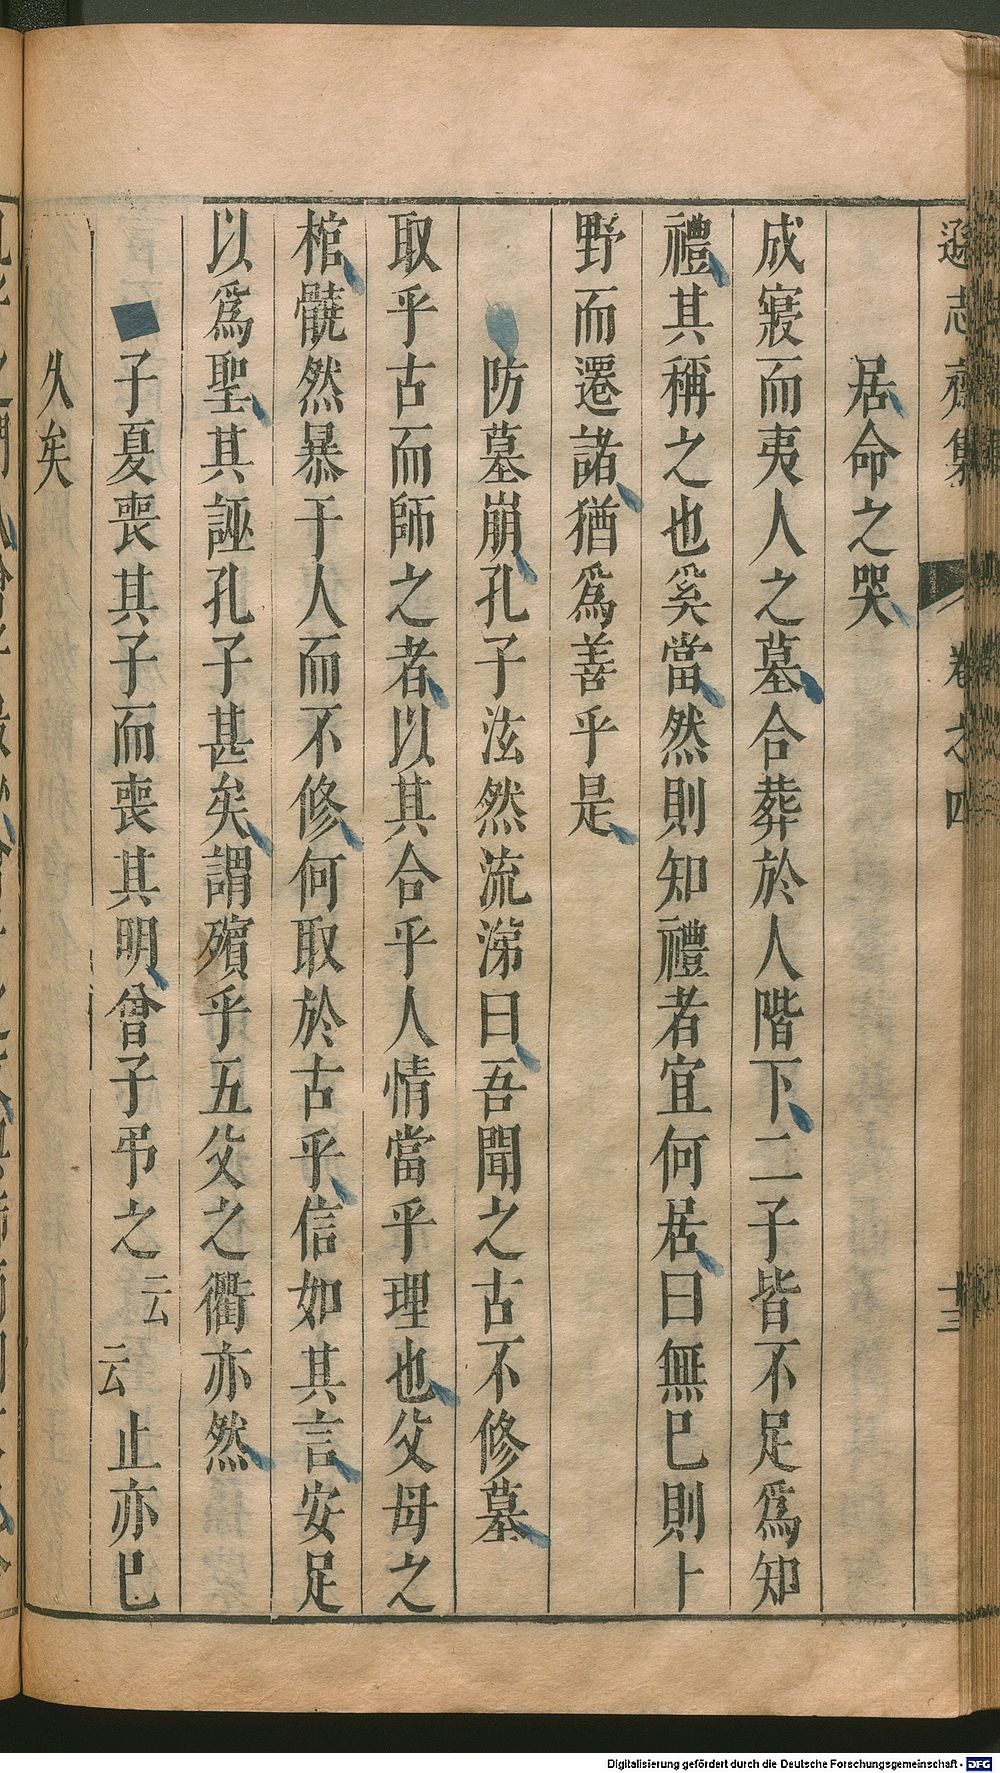 遜志齋集 卷之四 十三
居命之哭
成寢而夷人之墓合葬於人階下二子皆不足爲知
禮其稱之也奚當然則知禮者宜何居曰無已則卜
野而遷諸猶爲善乎是
防墓崩孔子泫然流涕曰吾聞之古不修墓
取乎古而師之者以其合乎人情當乎理也父母之
棺髐然暴于人而不修何取於古乎信如其言安足
以爲聖其誣孔子甚矣謂殯乎五父之衢亦然
子夏喪其子而喪其明曾子弔之云云止亦已
久矣
Digitalisierung gefördert durch die Deutsche Forschungsgemeinschaft - DFG